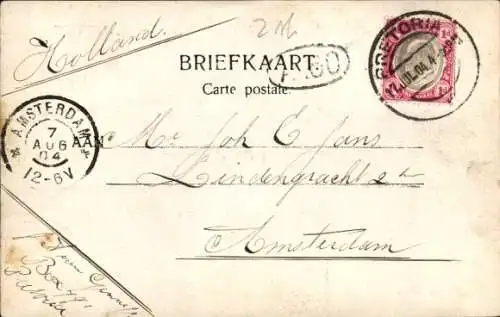 Holland.
2 M
BRIEFKAART.
Carte postale.
PRETORIA
17. JUL. 04
AMSTERDAM
7
AUG
04
12-6V
AAN
Mr. Joh E Jans
Lindengracht 2a
Amsterdam
Box
Pretoria